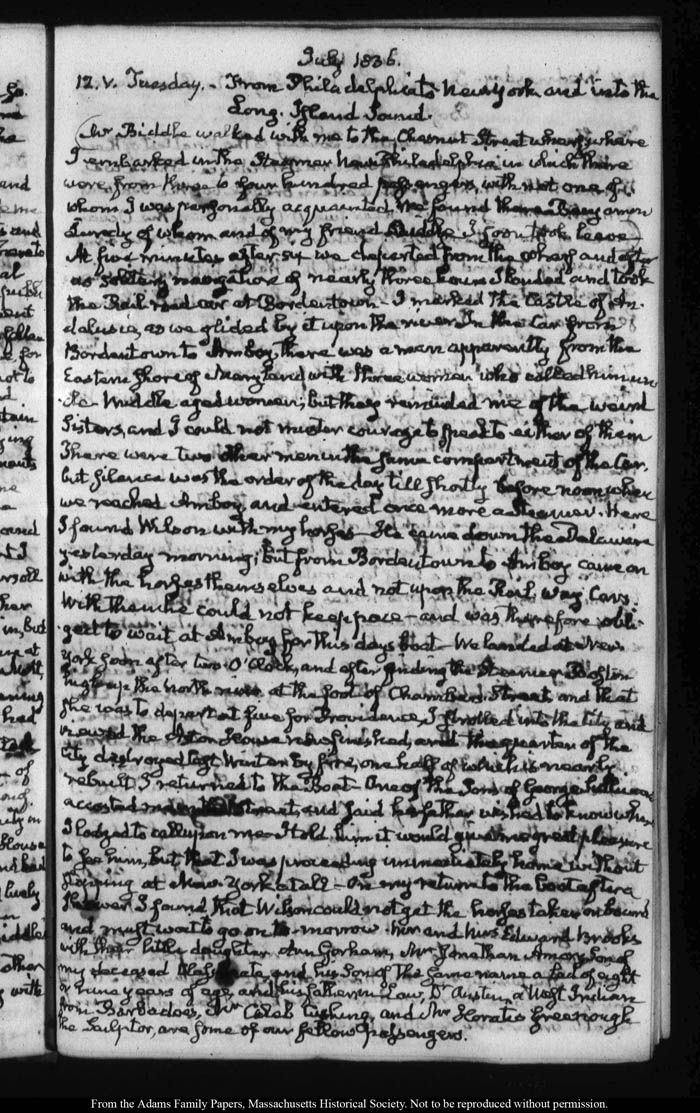 July 1836.
12. V. Tuesday. - From Philadelphia to New York and into the
Long-Island Sound.
Mr Biddle walked with me to the Chesnut Street wharf, where
I embarked in the Steamer New Philadelphia in which there
were from three to four hundred passengers, with not one of
whom I was personally acquainted. We found there
of whom and of my friend Biddle I soon took leave
At five minutes after six we departed from the wharf and after
a solitary navigation of nearly three hours I landed and took
the Rail road car at Bordentown - I marked the Castle of An-
dalusia, as we glided by it upon the river. In the Car from
Bordentown to Amboy, there was a man apparently from the
Eastern Shore of Maryland with three women who called him un-
cle. Middle aged women; but they reminded me of the weird
Sisters, and I could not muster courage to speak to either of them
There were two other men in the same compartment of the Car,
but silence was the order of the day till shortly before noon when
we reached Amboy, and entered once more a steamer. Here
I found Wilson with my horses - He came down the Delaware
yesterday morning; but from Bordentown to Amboy came on
with the horses themselves and not upon the Rail way Cars.
With them he could not keep pace - and was therefore obli-
ged to wait at Amboy for this days boat - We landed at New
York soon after two O'Clock, and after finding the Steamer Boston
high up the north river at the foot of Chambers Street, and that
she was to depart at five for Providence, I strolled into the City and
viewed the Astor House now finished, and the quarter of the
City destroyed last Winter by fire, one half of which is nearly
rebuilt. I returned to the Boat - One of the Sons of George
accosted me in the street, and said his father wished to know where
I lodged to call upon me. I told him it would give me great pleasure
to see him, but that I was proceeding immediately home without
stopping at New York at all - On my return to the boat after a
shower I found that Wilson could not get the horses taken on board
and must wait to go on to-morrow. Mr and Mrs Edward Brooks
with their little daughter Ann Gorham, Mr Jonathan Amory son of
my deceased Classmate, and his Son of the same name a lad of eight
or nine years of age, and his father in Law, Dr Austin, a West Indian
from Barbadoes, Mr Caleb Cushing, and Mr Horatio Greenough
the Sculptor, are some of our fellow passengers.
From the Adams Family Papers, Massachusetts Historical Society. Not to be reproduced without permission.